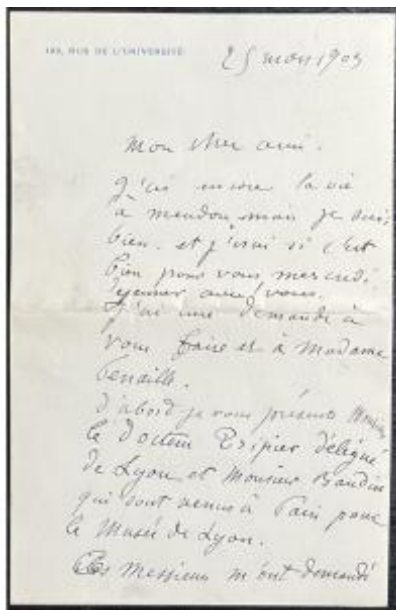 182, RUE DE L'UNIVERSITÉ
25 mars 1903
Mon cher ami.
J'ai encore la vie
à meudon mais je suis
bien. et j'irai si c'est
bien pour vous mercredi
avec vous.
J'ai une demande à
vous faire et à Madame
Fenaille.
d'abord je vous présente Monsieur
le Docteur Tripier délégué
de Lyon et Monsieur Baudin
qui sont venus à Paris pour
le Musée de Lyon.
Ces Messieurs m'ont demandé